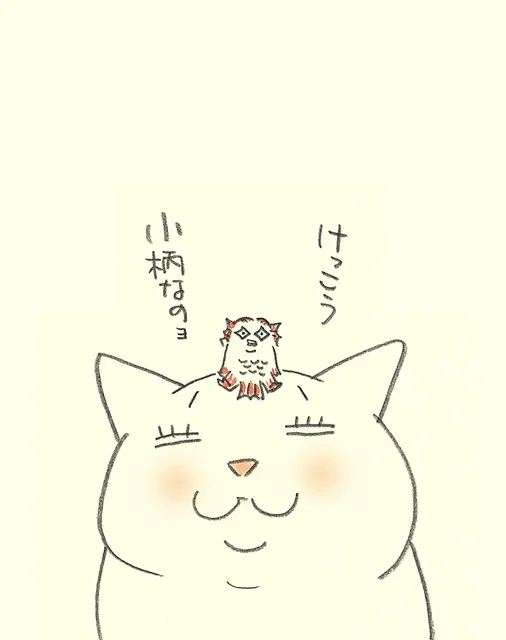 けっこう
小柄なのョ